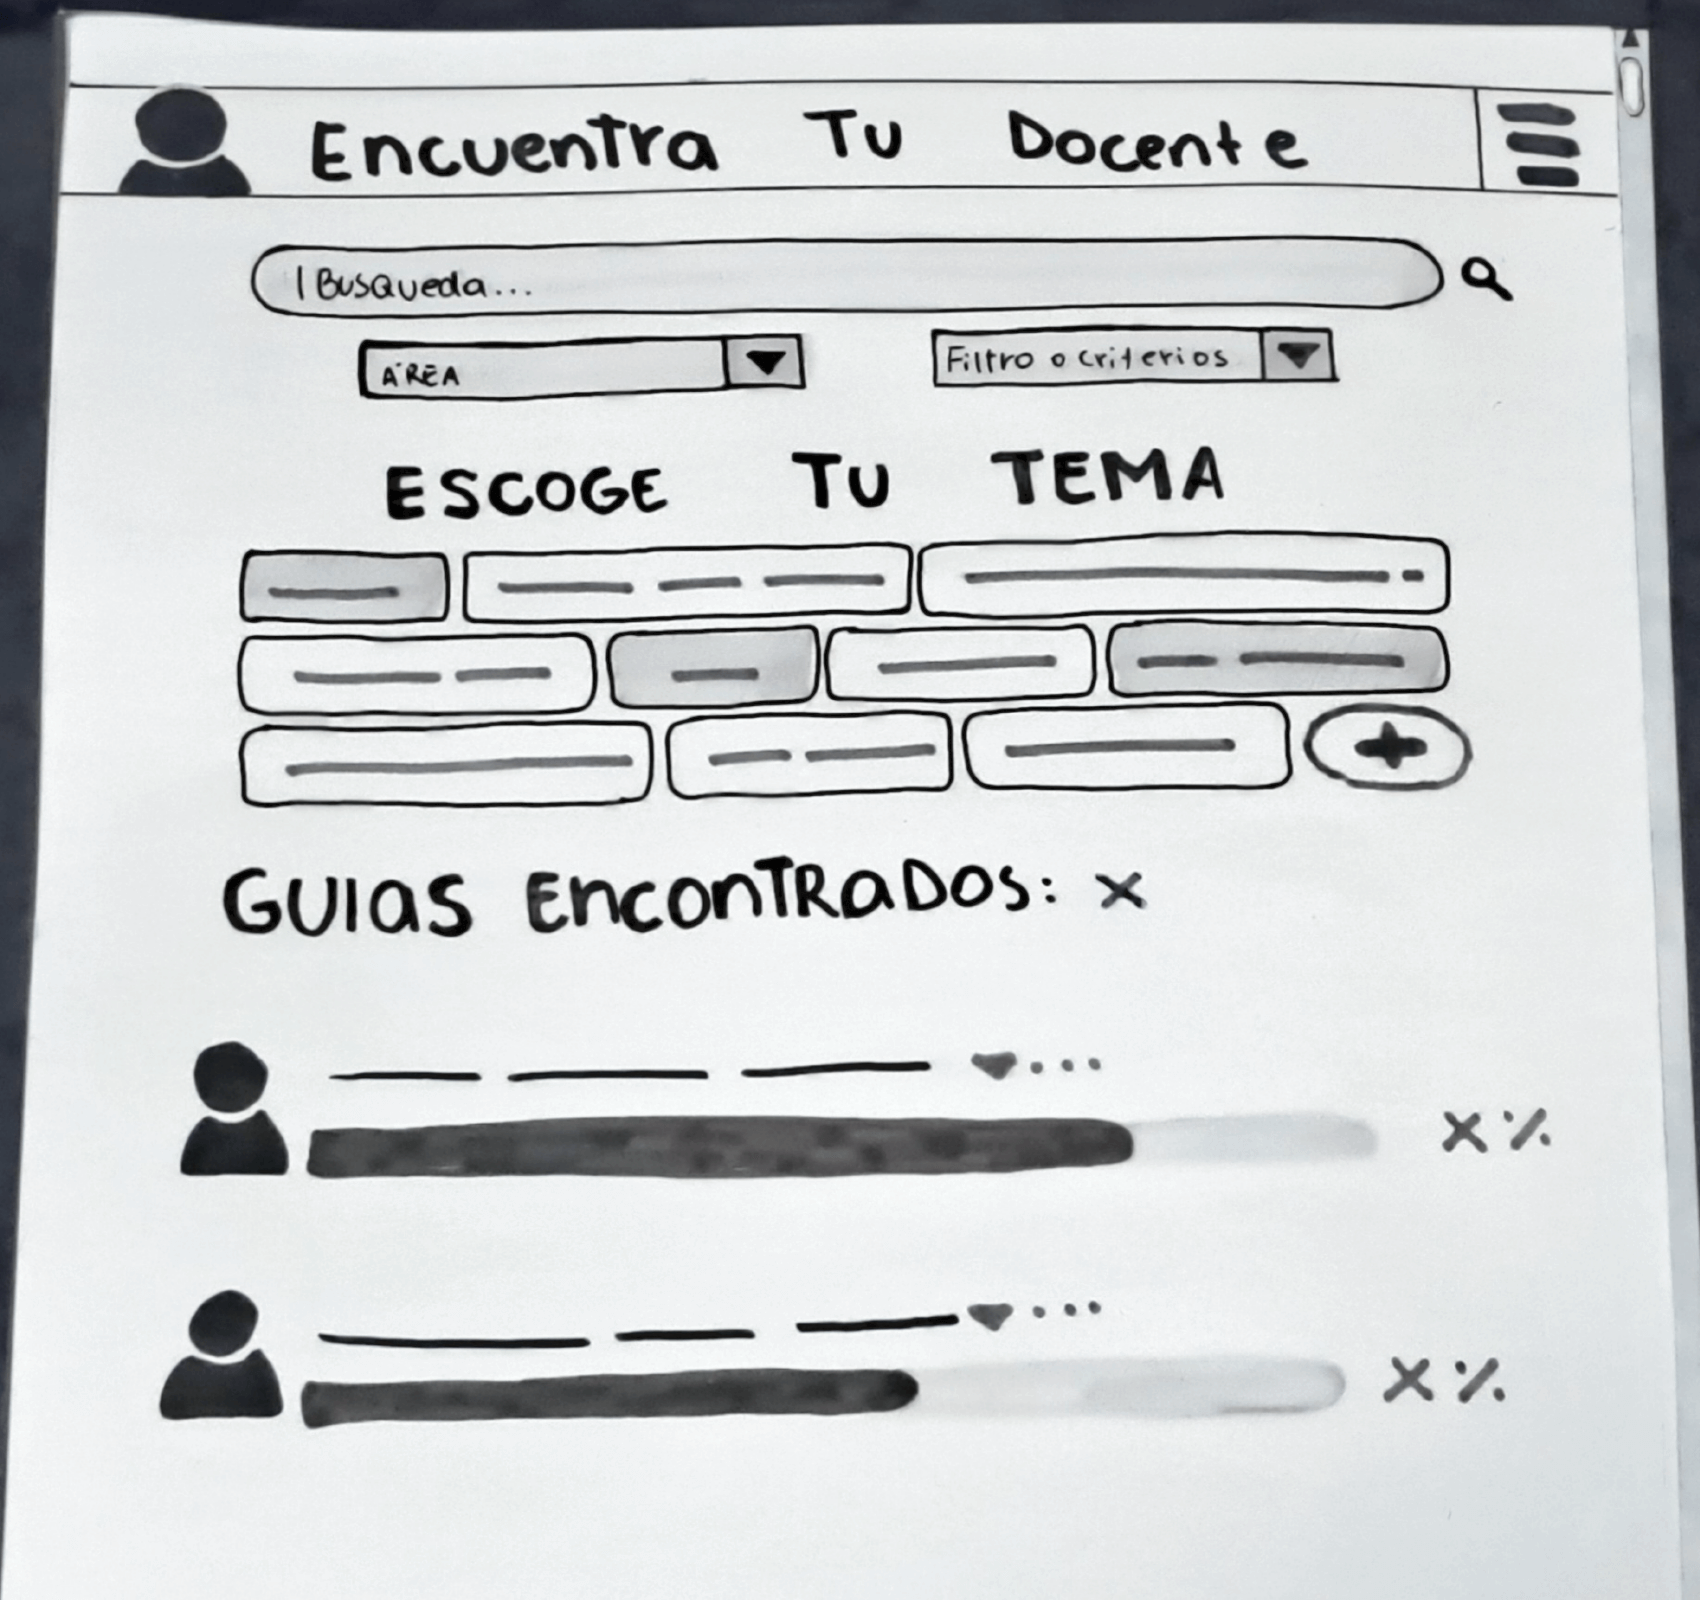 Encuentra Tu Docente
| Busqueda...
ÁREA
Filtro o criterios
ESCOGE TU TEMA
GUIas EnconTRaDOS: x
x %
x %